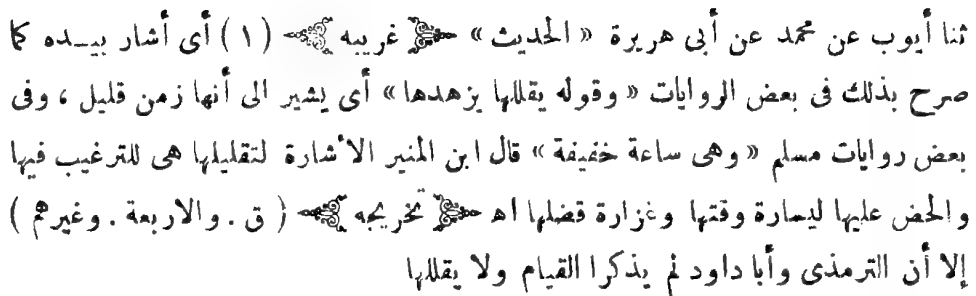 ثنا أيوب عن محمد عن أبى هريرة « الحديث » غريبه (١) أى أشار بيـده كما
صرح بذلك فى بعض الروايات « وقوله يقللها يزهدها » أى يشير الى أنها زمن قليل ، وفى
بعض روايات مسلم « وهى ساعة خفيفة » قال ابن المنير الأشارة لتقليلها هى للترغيب فيها
والحض عليها ليسارة وقتها وغزارة فضلها اهـ تخريجه ( ق . والاربعة . وغيرهم )
إلا أن الترمذى وأبا داود لم يذكرا القيام ولا يقللها